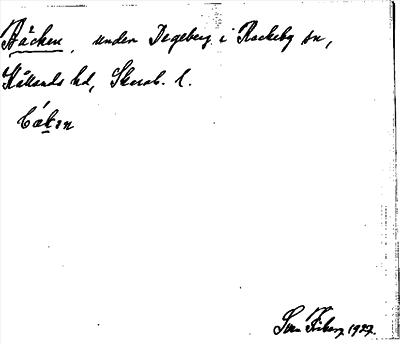 Bäcken, under Degeberg i Rackeby sn,
Kållands hd, Skarab. l.
bäkɜn
Sven 1927.